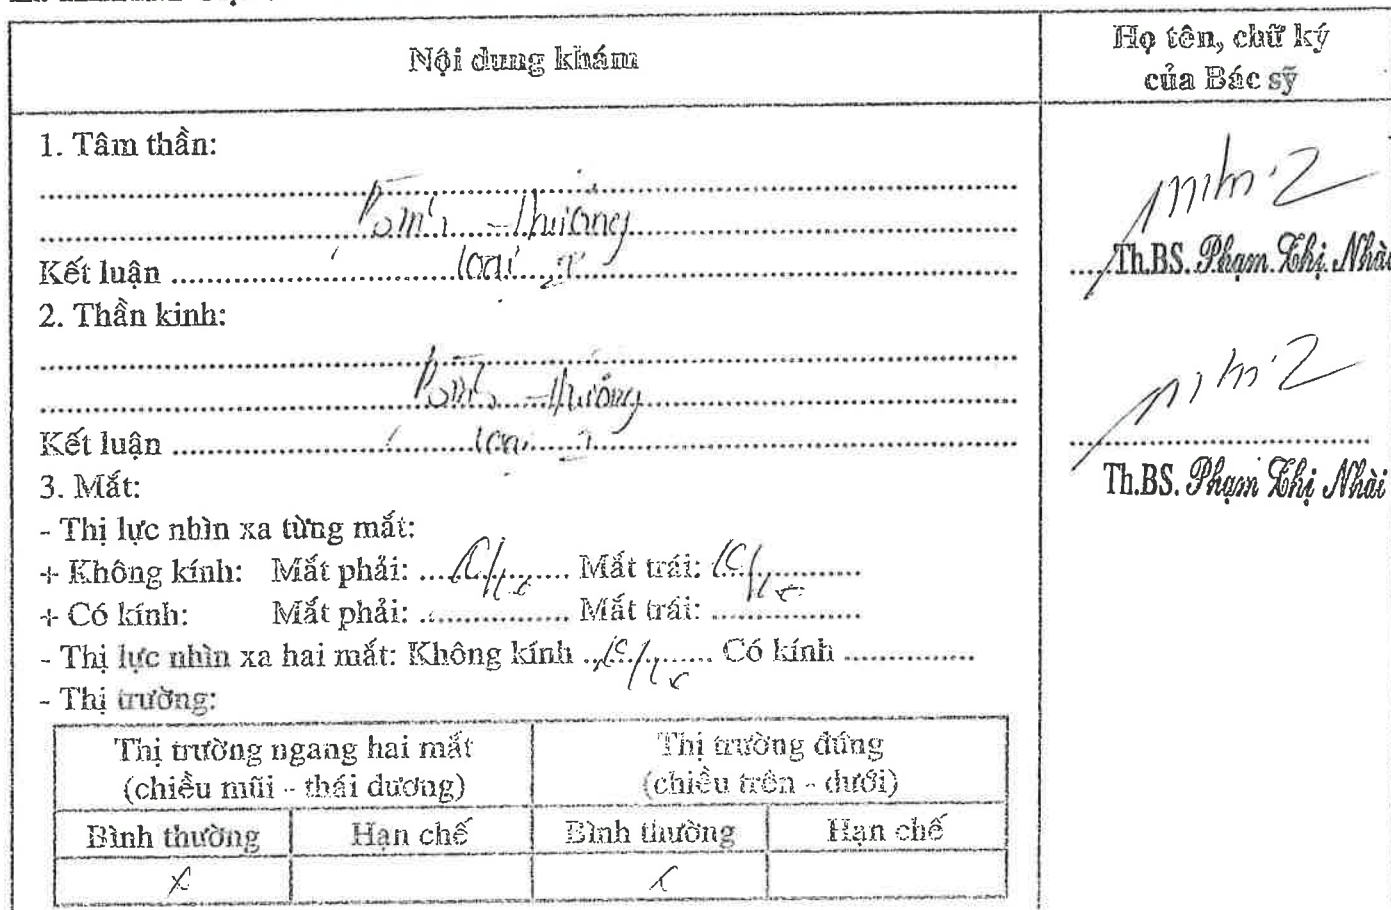 Nội dung khám
Họ tên, chữ ký
của Bác sỹ
1. Tâm thần:
Bình thường
Kết luận ........ loại
Th.BS. Phạm Thị Nhài
2. Thần kinh:
Bình thường
Kết luận ........ loại
Th.BS. Phạm Thị Nhài
3. Mắt:
- Thị lực nhìn xa từng mắt:
+ Không kính: Mắt phải: ........ Mắt trái: ........
+ Có kính: Mắt phải: ........ Mắt trái: ........
- Thị lực nhìn xa hai mắt: Không kính ........ Có kính ........
- Thị trường:
Thị trường ngang hai mắt
(chiều mũi - thái dương)
Thị trường đứng
(chiều trên - dưới)
Bình thường Hạn chế Bình thường Hạn chế
x x